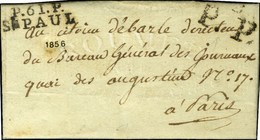 P.61.P.
St PAUL
P.P.
Au citoien debarle directeur
1856
du Bureau Général des Journaux
quai des augustins N.° 17.
a Paris